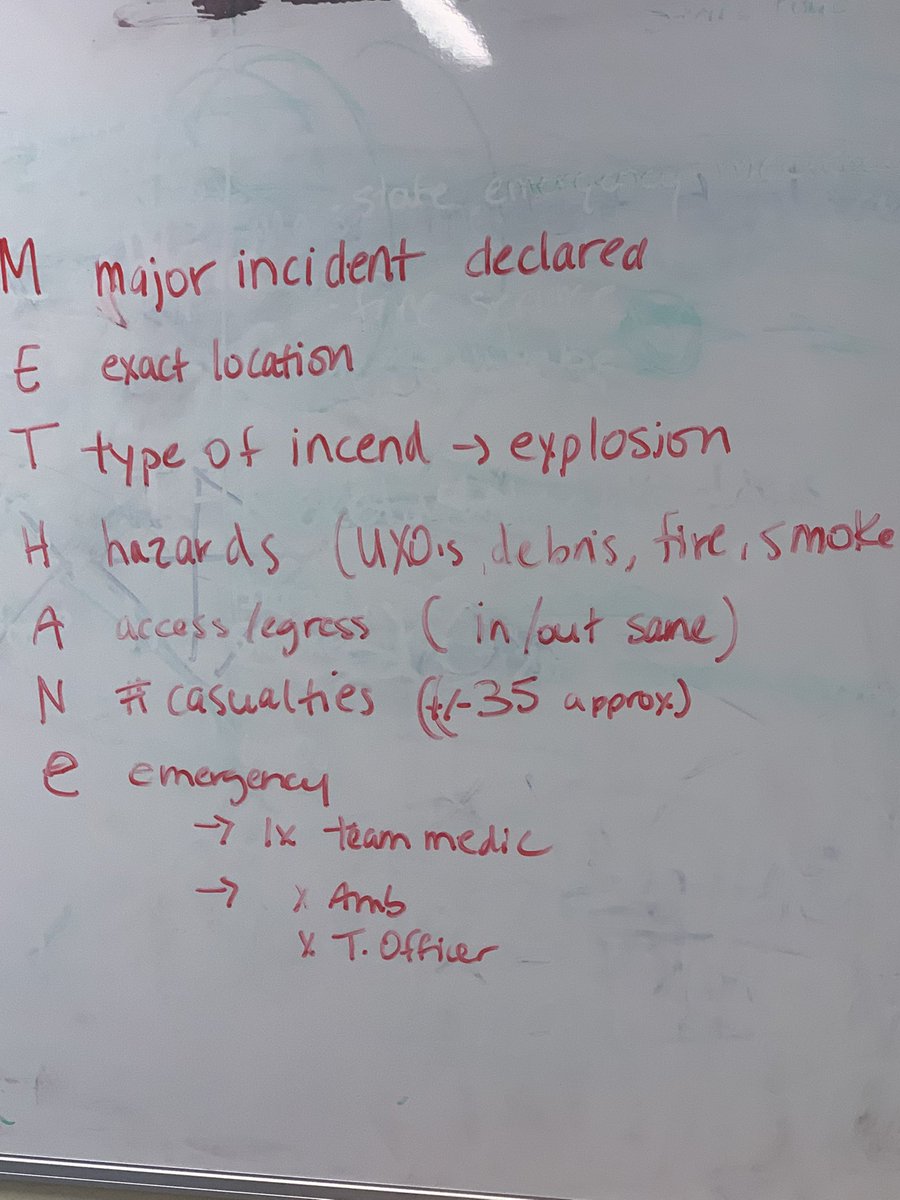 state emergency
M major incident declared
E exact location
T type of incend → explosion
H hazards (UXO's, debris, fire, smoke
A access/egress (in/out same)
N # casualties (+/-35 approx.)
e emergency
→ 1x team medic
→ x Amb
x T. Officer